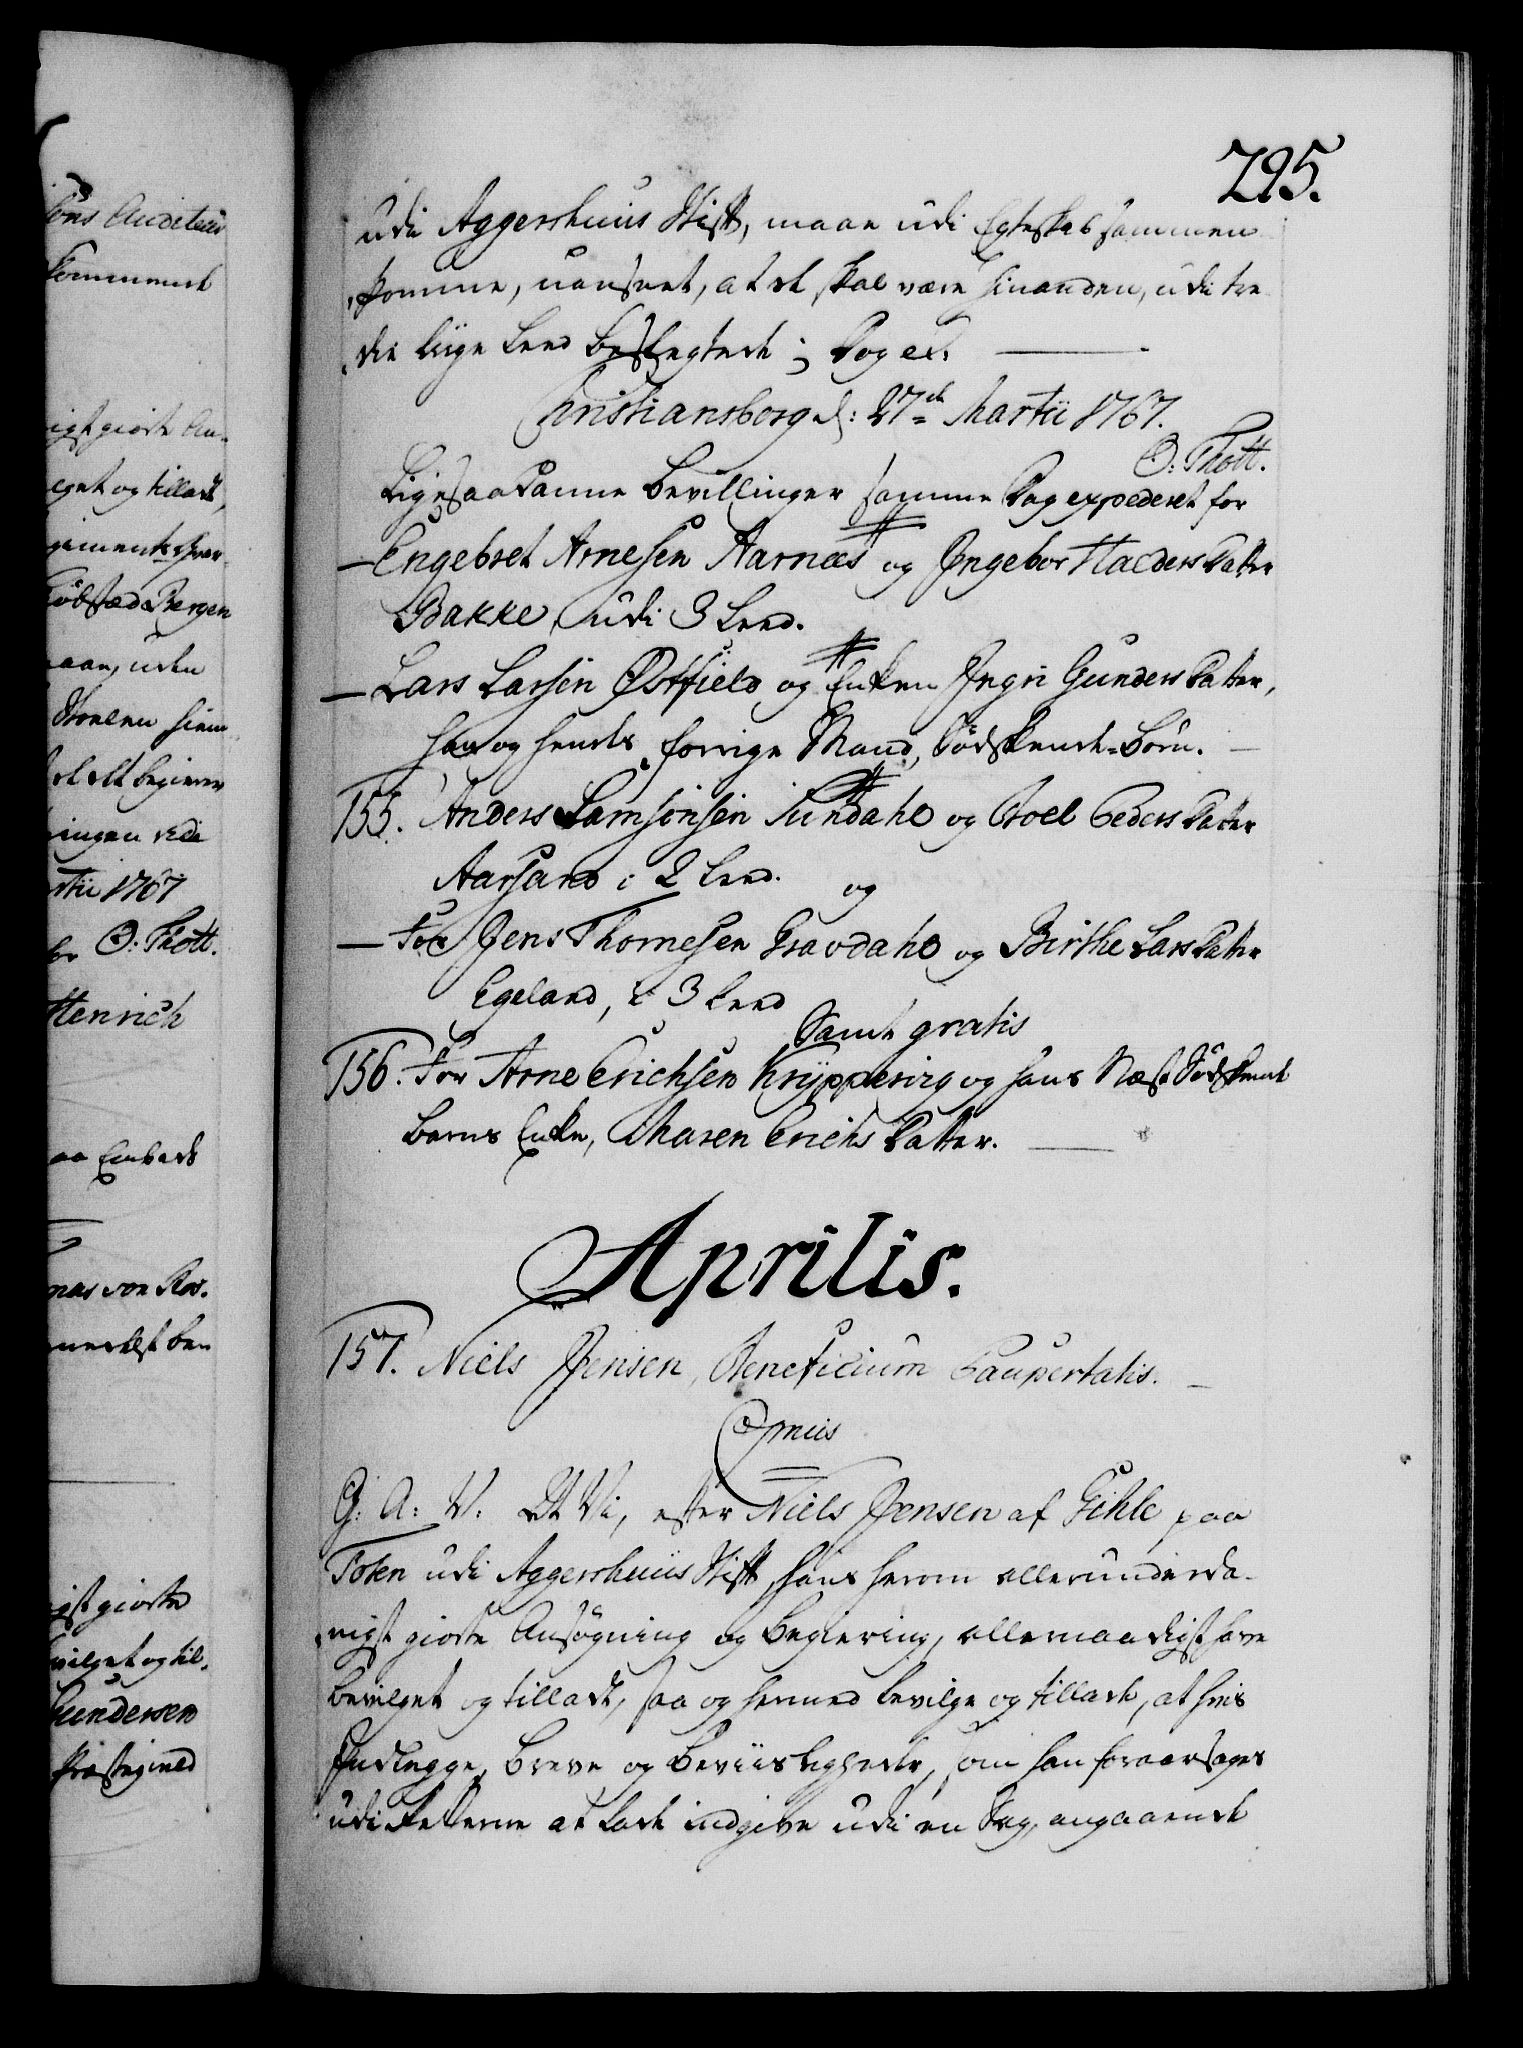 295.
udi Aggershuus Stift, maae udi Egteskab sammen
komme, uanseet, at de skal være hinanden, udi tre
die liige Leed beslegtede; Dog et.
Christiansborg d: 27de Martii 1767.
O: Thott.
Ligesaadanne Bevillinger samme Dag expederet for
— Engebret Arnesen Aarnæs og Ingebor Halders Datter
Bakke, udi 3 Leed.
— Lars Larsen Østfield og Enken Ingri Gunders Datter,
han og hendes forrige Mand, Sødskende-Børn. —
155. Anders Samsonsen Sundahl og Boel Peders Datter
Aarsand i 2 Leed. og
— For Jens Thomesen Gravdahl og Birthe Lars Datter
Egeland, i 3 Leed
Samt gratis
156. For Arne Erichsen Kryppevig og hans Næst Sødskende
Barns Enke, Maren Erichs Datter. —
Aprilis.
157. Niels Jensen, Beneficium Paupertatis. —
G: A: V. At Vi, efter Niels Jensen af Gihle paa
Toten udi Aggershuus Stift, hans herom allerunderda-
nigst giorte Ansøgning og Begiering, allernaadigst have
bevilget og tilladt, saa og hermed bevilge og tillade, at hvis
Indlegge, Breve og Beviisligheder, som han foraarsages
udi Retterne at lade indgive udi en Sag, angaaende
ons Auditeur
kommende
igst giorte An-
lget og tilladt,
giments qvar-
Kiøbstæd Bergen
maae, uden
et alt begierer
ningen rede
rtii 1767
O: Thott.
Henrich
aa Embeds
mas von Ros.
igst giorte
vilget og til-
Gundersen